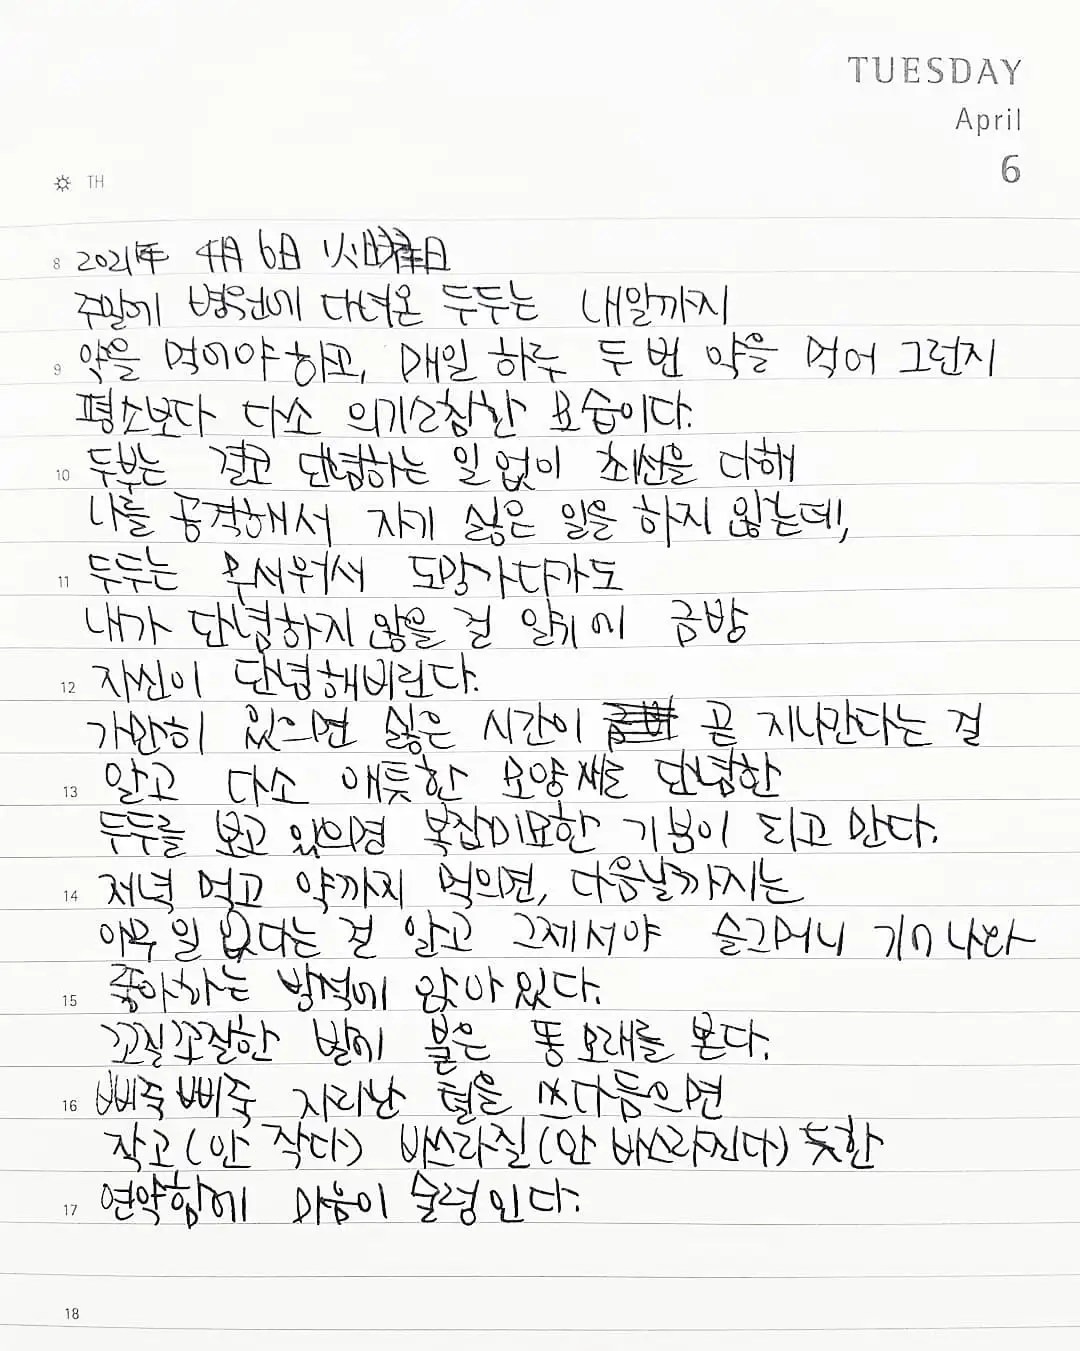 TUESDAY
April
6
TH
8 2021年 4月 6日 火曜日
주말에 병원에 다녀온 두두는 내일까지
9 약을 먹어야 하고, 매일 하루 두 번 약을 먹어 그런지
평소보다 다소 의기소침한 모습이다.
10 두부는 결코 단념하는 일 없이 최선을 다해
나를 공격해서 자기 싫은 일을 하지 않는데,
11 두두는 무서워서 도망가다가도
내가 단념하지 않을 걸 알기에 금방
12 자신이 단념해버린다.
가만히 있으면 싫은 시간이 곧 지나간다는 걸
13 알고 다소 애틋한 모양새로 단념한
두두를 보고 있으면 복잡미묘한 기분이 되고 만다.
14 저녁 먹고 약까지 먹으면, 다음날까지는
아무 일 없다는 걸 알고 그제서야 슬그머니 기어나와
15 좋아하는 방석에 앉아 있다.
꼬질꼬질한 발에 붙은 똥 모래를 본다.
16 삐죽삐죽 자라난 털을 쓰다듬으면
작고 (안 작다) 바스라질 (안 바스라진다) 듯한
17 연약함에 마음이 술렁인다.
18